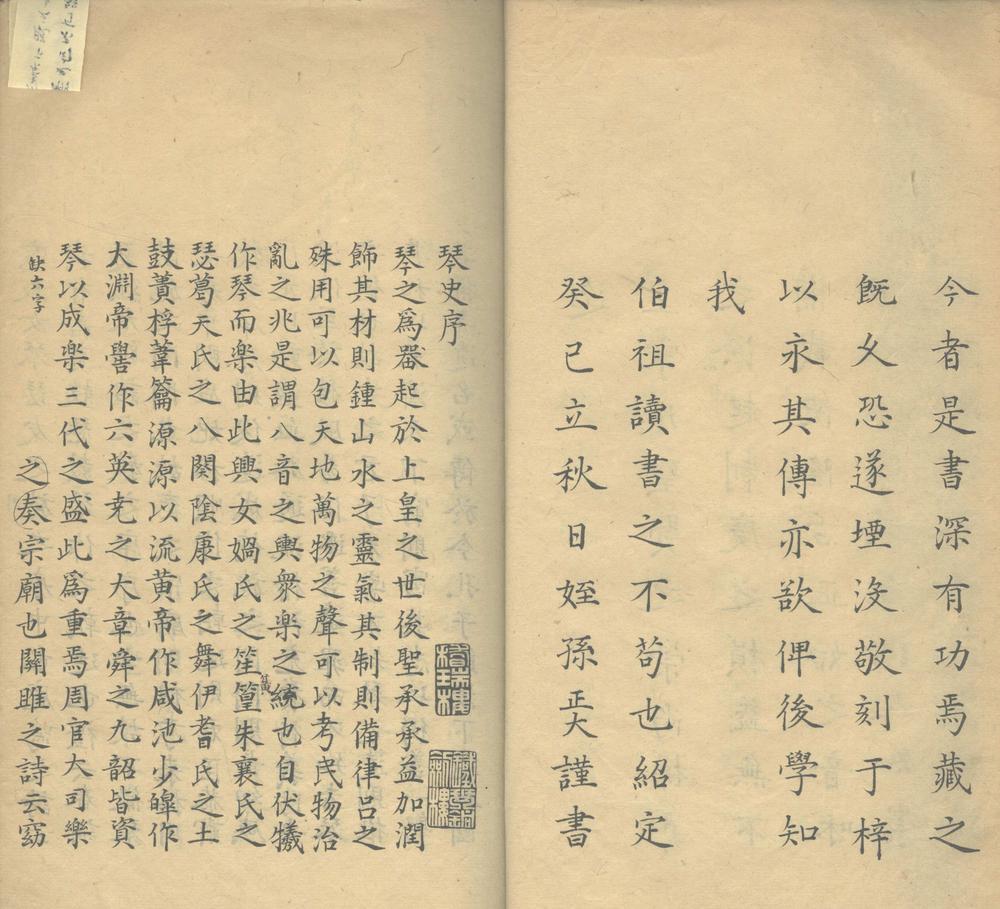 今者是書深有功焉藏之
既久恐遂堙沒敬刻于梓
以永其傳亦欲俾後學知
我
伯祖讀書之不苟也紹定
癸已立秋日姪孫正大謹書
琴史序
琴之爲器起於上皇之世後聖承承益加潤
飾其材則鍾山水之靈氣其制則備律呂之
殊用可以包天地萬物之聲可以考民物治
亂之兆是謂八音之輿衆樂之統也自伏犧
作琴而樂由此興女媧氏之笙篁朱襄氏之
簧
瑟葛天氏之八闋陰康氏之舞伊耆氏之土
鼓蕢桴葦籥源源以流黄帝作咸池少皞作
大淵帝嚳作六英尭之大章舜之九韶皆資
琴以成樂三代之盛此爲重焉周官大司樂
缺六字
之奏宗廟也關雎之詩云窈